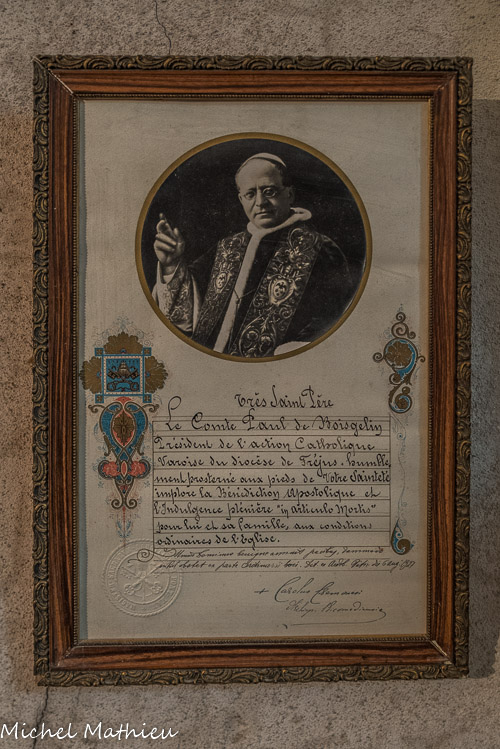 Très Saint Père
Le Comte Paul de Boisgelin
Président de l'action Catholique
Varoise du diocèse de Fréjus, humble,
ment prosterné aux pieds de Votre Sainteté
implore la Bénédiction Apostolique et
l'Indulgence plénière "in Articulo Mortis"
pour lui et sa famille, aux conditions
ordinaires de l'Église.
Michel Mathieu